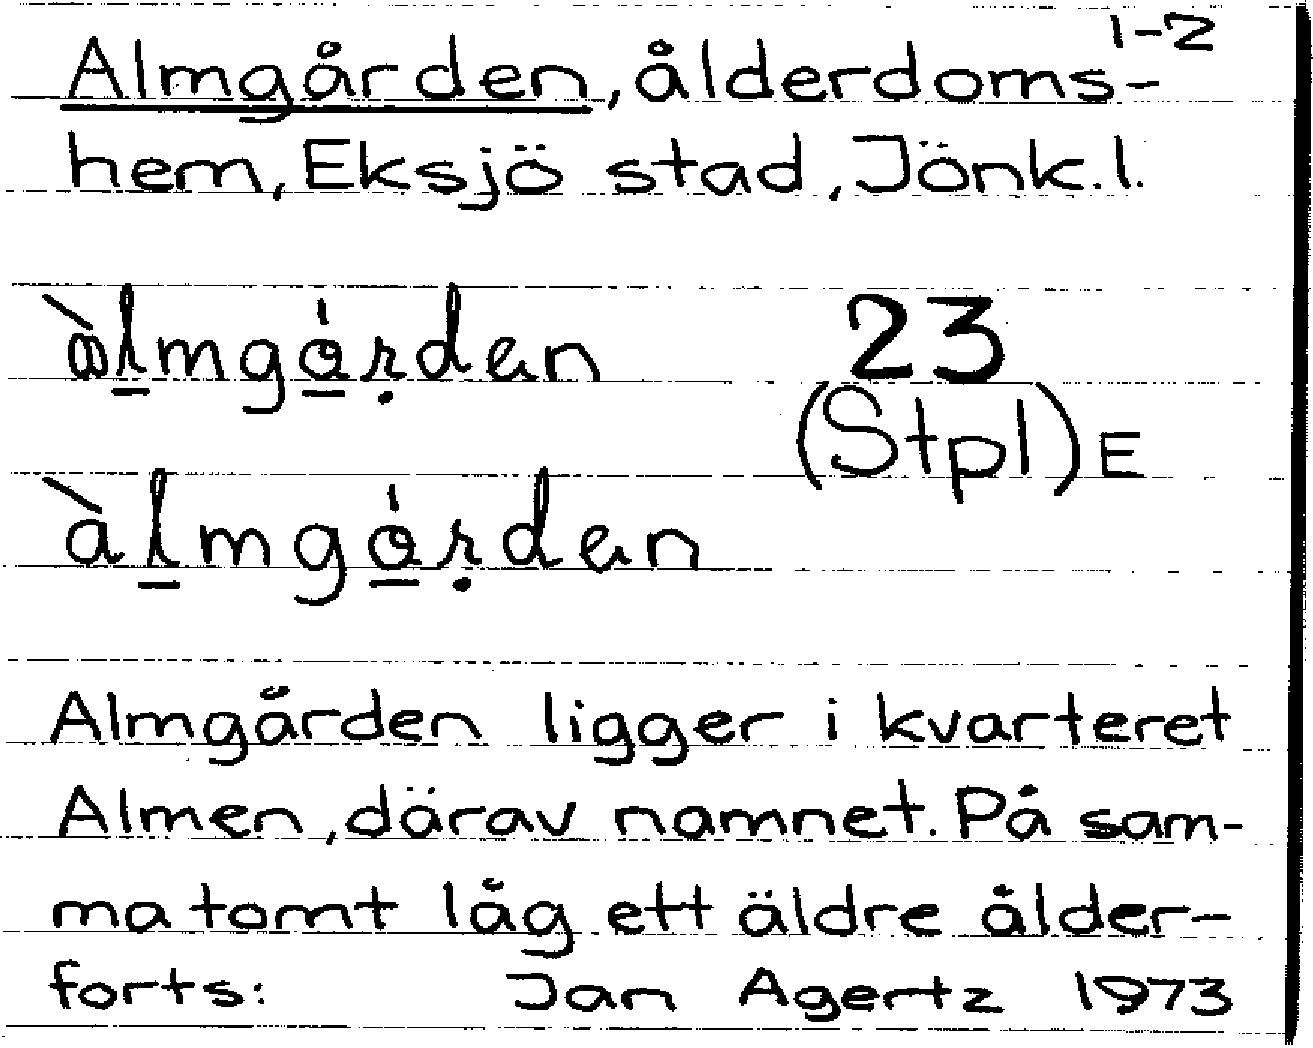 1-2
Almgården, ålderdoms-
hem, Eksjö stad, Jönk.l.
àlmgården 23
(Stpl) E
àlmgården
Almgården ligger i kvarteret
Almen, därav namnet. På sam-
ma tomt låg ett äldre ålder-
forts: Jan Agertz 1973